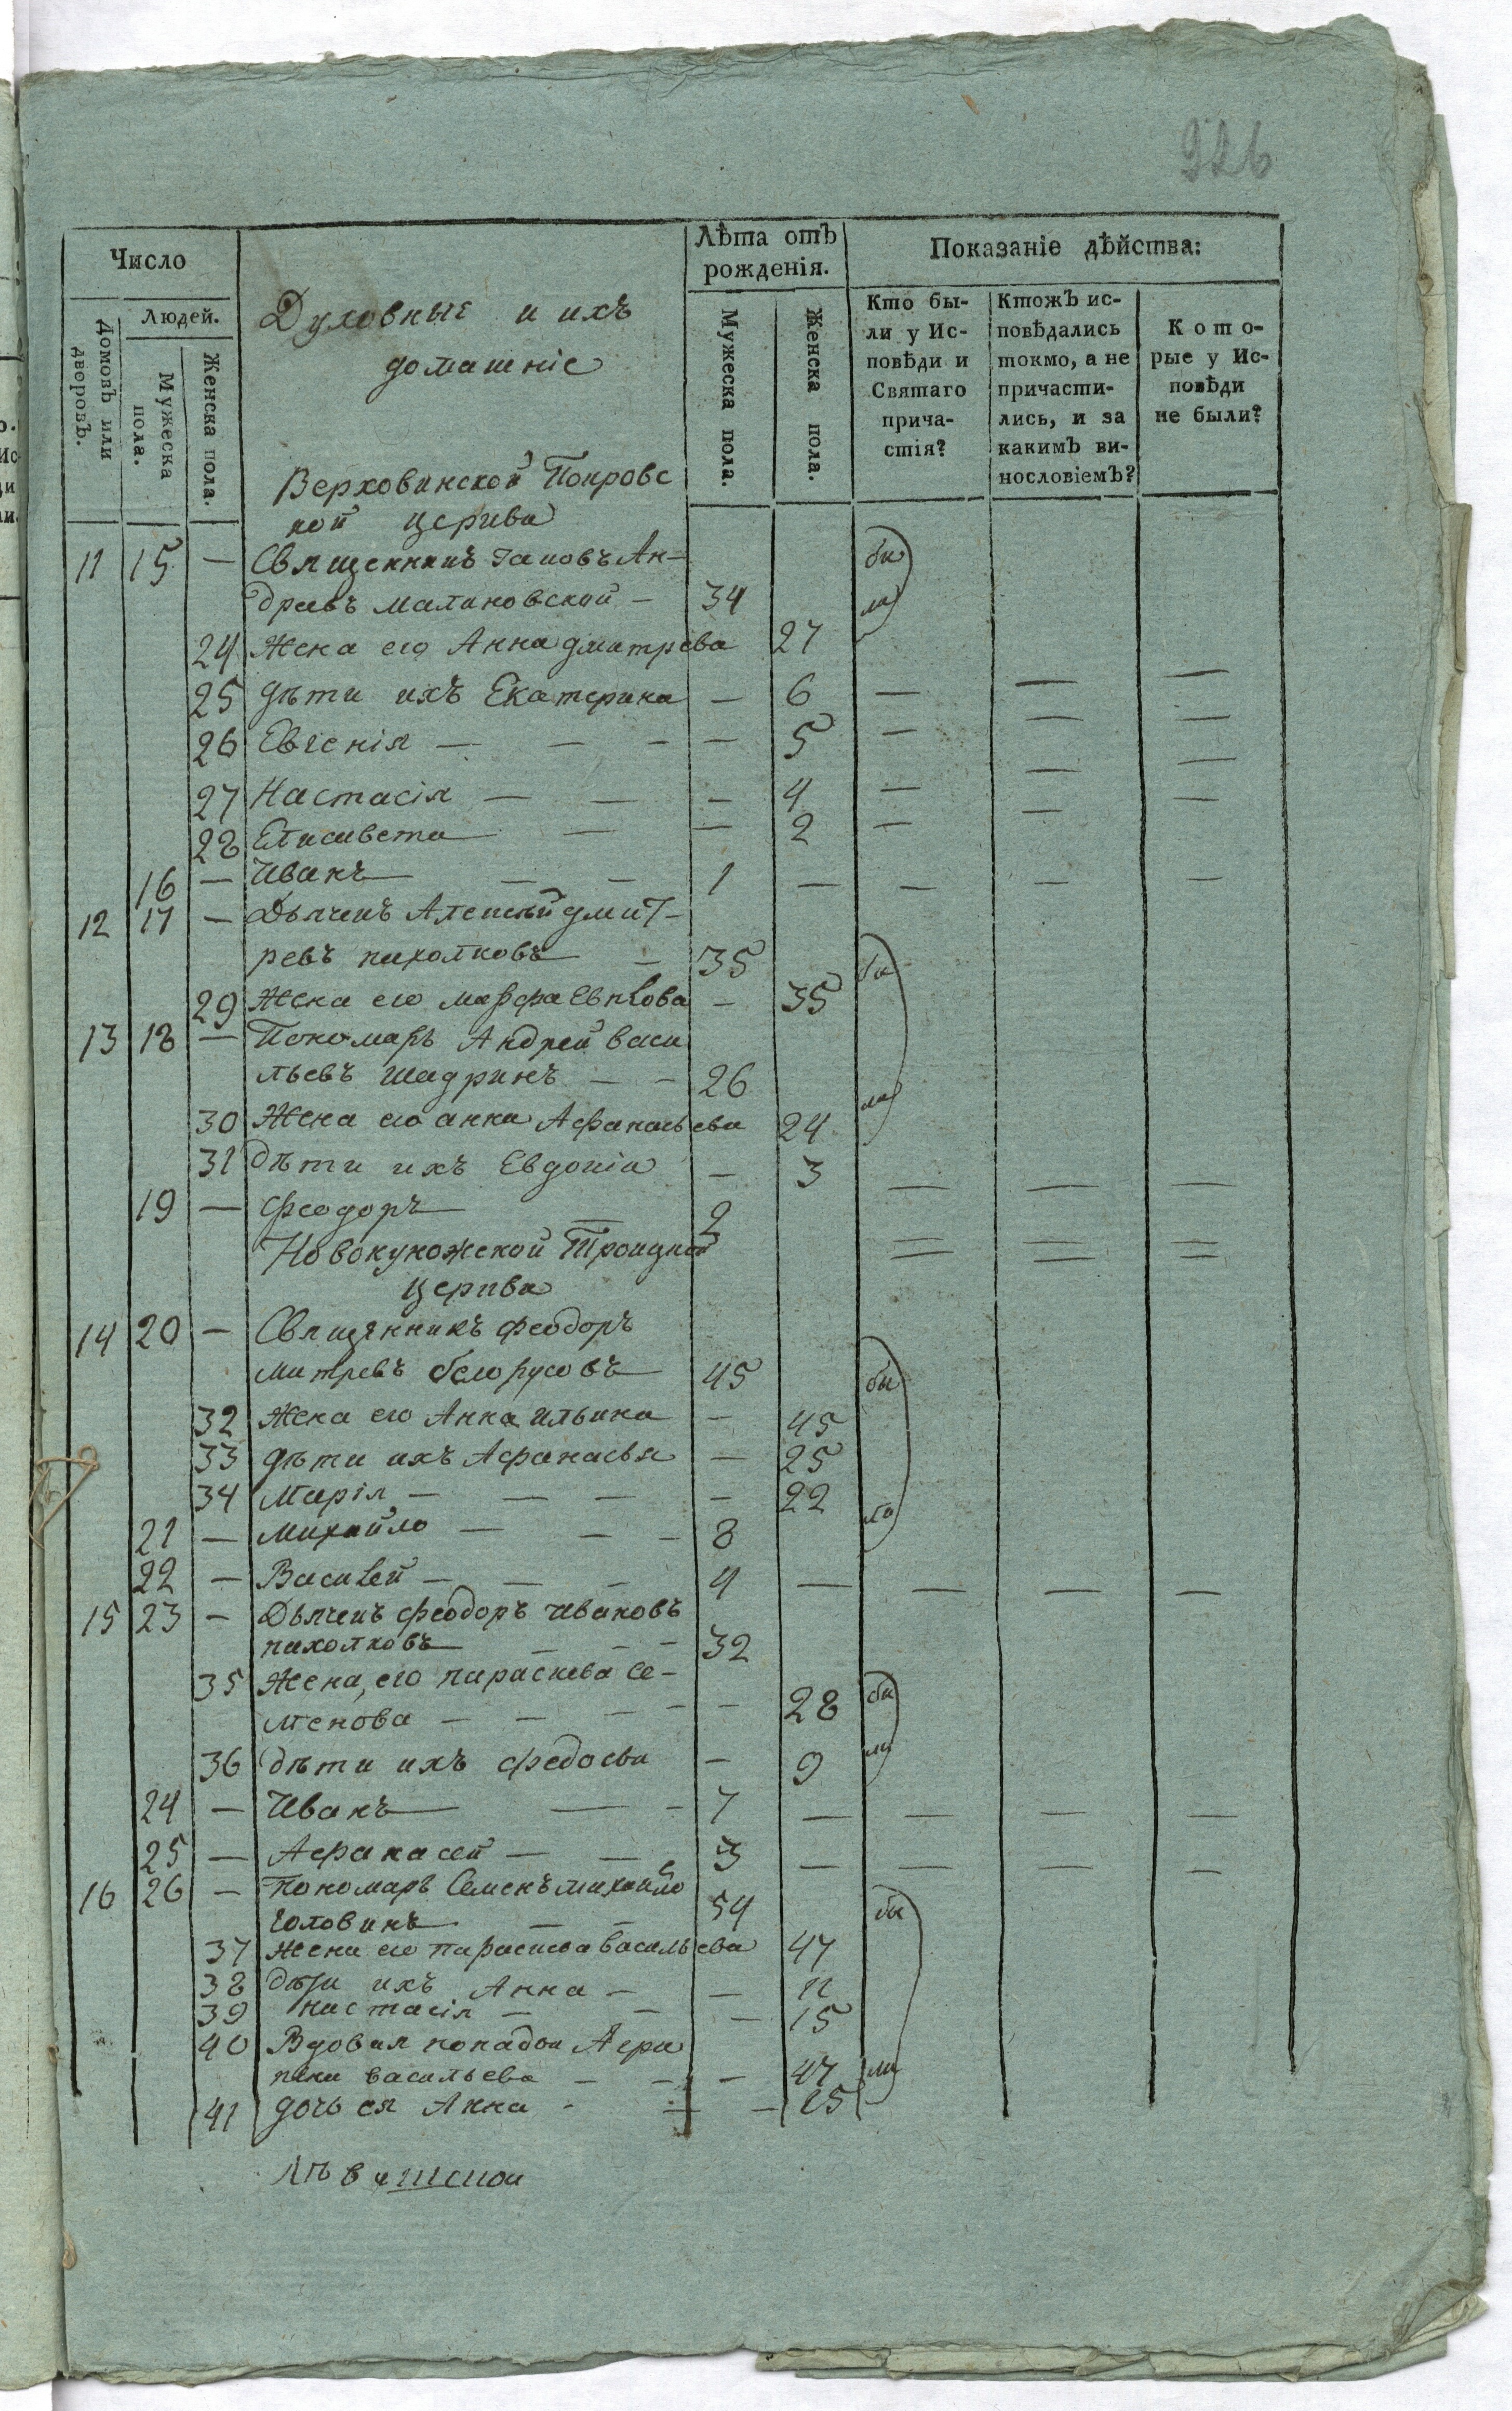 926
Число
Людей.
Домовъ или дворовъ.
Мужеска пола.
Женска пола.
Лѣта отъ рожденія.
Мужеска пола.
Женска пола.
Показаніе дѣйства:
Кто бы-
ли у Ис-
повѣди и
Святаго
прича-
стія?
Ктожъ ис-
повѣдались
токмо, а не
причасти-
лись, и за
какимъ ви-
нословіемъ?
Кото-
рые у Ис-
повѣди
не были?
Духовные и ихъ
домашніе
Верховинской Покровс
кой церкви
11 15 — Священникъ Іаковъ Ан- бы
древъ Малиновской — 34 ли
24 Жена его Анна дмитрева 27
25 дѣти ихъ Екатерина — 6 — — —
26 Евгенія — — — — 5 — — —
27 Настасія — — — 4 — — —
28 Елисавета — — 2 — — —
16 — Иванъ — — 1 — — — —
12 17 — Дьячекъ Алексѣй дмит-
ревъ пихолковъ — 35 бы
29 Жена его марфа Евлова — 35
13 18 — Пономарь Андрей васи
льевъ шадринъ — — 26 ли
30 Жена его анна Афанасьева 24
31 дѣти ихъ Евдокіа — 3 — — —
19 — Феодоръ — 2
Новокуножской Троицкой — — —
церкви
14 20 — Священникъ Феодоръ
митревъ белорусовъ 45 бы
32 Жена его Анна ильина — 45
33 дѣти ихъ Афанасья — 25
34 Марія — — — — 22
21 — Михайло — — — 8 ли
22 — Василей — — — 4 — — — —
15 23 — Дьячекъ Феодоръ ивановъ
пихолковъ — — — 32
35 Жена его параскева Се- бы
менова — — — — — 28
36 дѣти ихъ Федосья — 9 ли
24 — Иванъ — — 7 — — — —
25 — Афанасей — — 3 — — — —
16 26 — Пономарь Семенъ михайло
головинъ — — 54 бы
37 Жена его Параскева васильева 47
38 дѣти ихъ Анна — — 11
39 настасія — — — 15
40 Вдовая попадья Агри
пена васильева — — — 47 ли
41 дочь ея Анна - — — 25